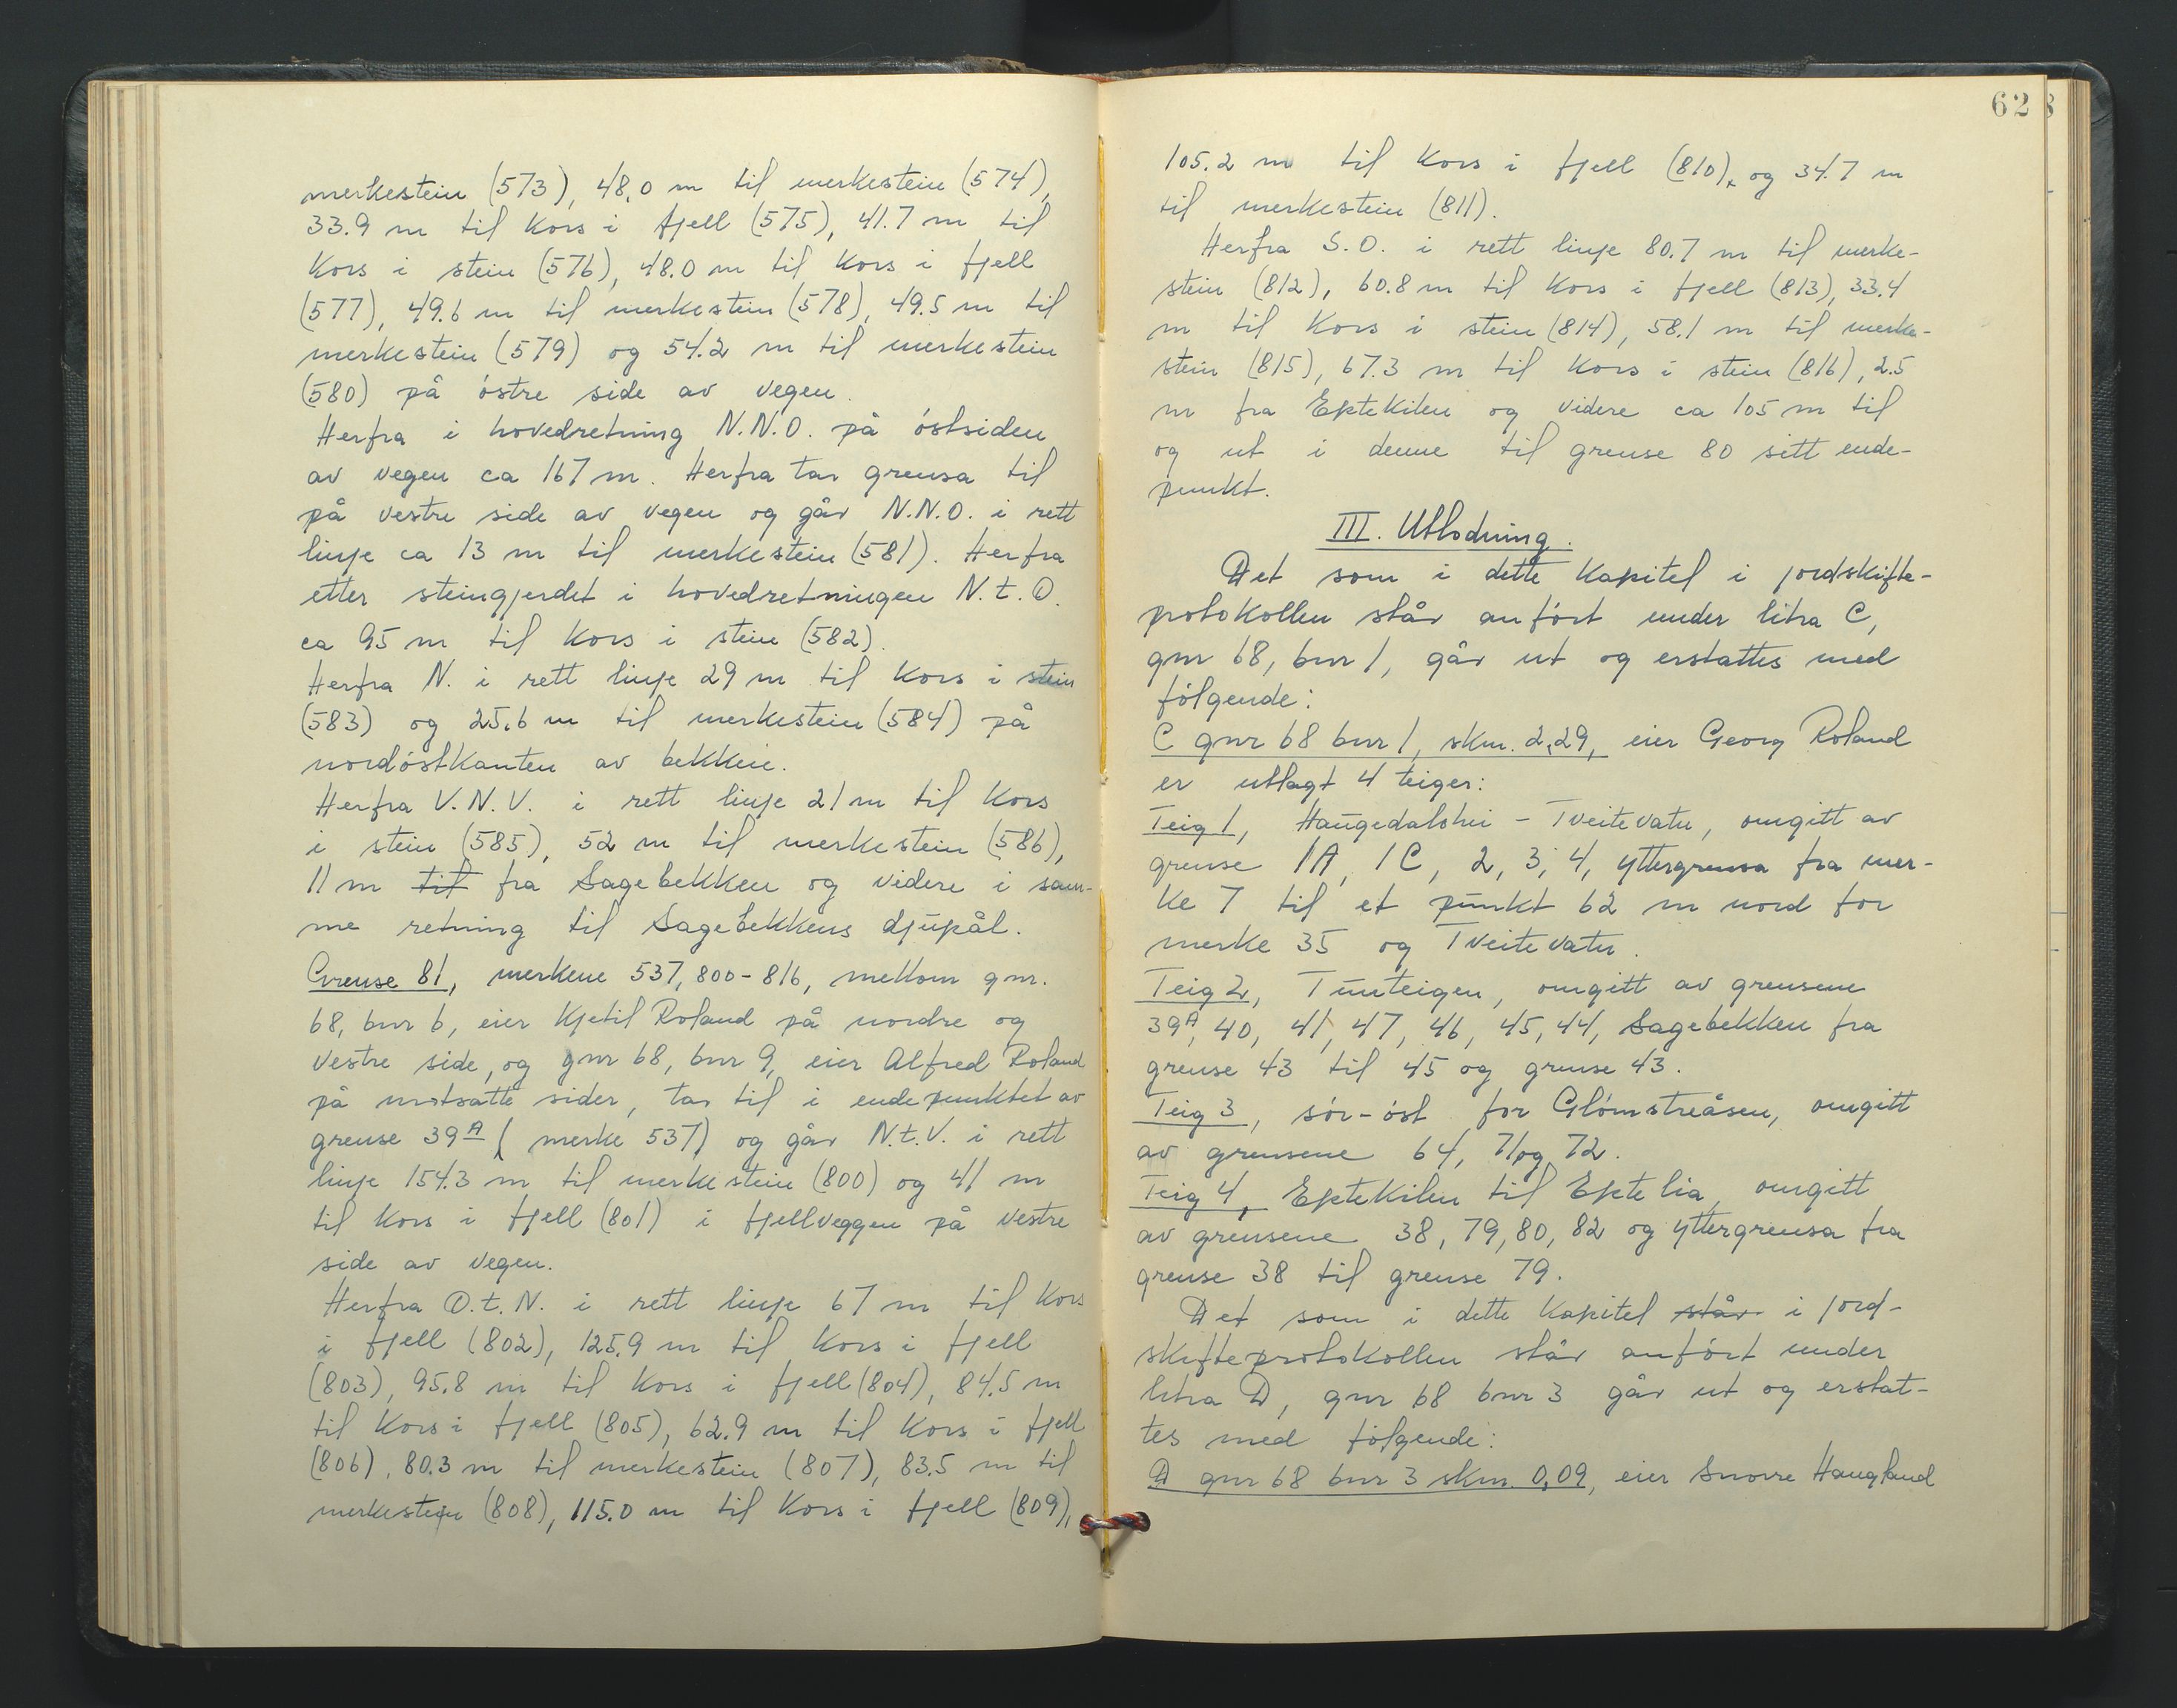 merkestein (573), 48.0 m til merkestein (574),
33.9 m til Kors i fjell (575), 41.7 m til
Kors i stein (576), 48.0 m til Kors i fjell
(577), 49.6 m til merkestein (578), 49.5 m til
merkestein (579) og 54.2 m til merkestein
(580) på østre side av vegen.
Herfra i hovedretning N.N.O. på østsiden
av vegen ca 167 m. Herfra tar grensa til
på vestre side av vegen og går N.N.O. i rett
linje ca 13 m til merkestein (581). Herfra
etter steingjerdet i hovedretningen N.t.O.
ca 95 m til Kors i stein (582).
Herfra N. i rett linje 29 m til Kors i stein
(583) og 25.6 m til merkestein (584) på
nordøstkanten av bekken.
Herfra V.N.V. i rett linje 21 m til Kors
i stein (585), 52 m til merkestein (586),
11 m til fra Sagebekken og videre i sam-
me retning til Sagebekkens djupål.
Grense 81, merkene 537, 800-816, mellom gnr.
68, bnr 6, eier Kjetil Roland på nordre og
vestre side, og gnr 68, bnr 9, eier Alfred Roland
på motsatte sider, tar til i endepunktet av
grense 39A (merke 537) og går N.t.V. i rett
linje 154.3 m til merkestein (800) og 41 m
til Kors i fjell (801) i fjellveggen på vestre
side av vegen.
Herfra O.t.N. i rett linje 67 m til Kors
i fjell (802), 125.9 m til Kors i fjell
(803), 95.8 m til Kors i fjell (804), 84.5 m
til Kors i fjell (805), 62.9 m til Kors i fjell
(806), 80.3 m til merkestein (807), 83.5 m til
merkestein (808), 115.0 m til Kors i fjell (809),
62
105.2 m til Kors i fjell (810), og 34.7 m
til merkestein (811).
Herfra S.O. i rett linje 80.7 m til merke-
stein (812), 60.8 m til Kors i fjell (813), 33.4
m til Kors i stein (814), 58.1 m til merke-
stein (815), 67.3 m til Kors i stein (816), 2.5
m fra Eptekilen og videre ca 105 m til
og ut i denne til grense 80 sitt ende-
punkt.
III. Utlodning.
Det som i dette Kapitel i jordskifte-
protokollen står anført under litra C,
gnr 68, bnr 1, går ut og erstattes med
følgende:
C gnr 68 bnr 1, skm. 2,29, eier Georg Roland
er utlagt 4 teiger:
Teig 1, Haugedalshei - Tveitevatn, omgitt av
grense 1A, 1C, 2, 3, 4, yttergrensa fra mer-
ke 7 til et punkt 62 m nord for
merke 35 og Tveitevatn.
Teig 2, Tunteigen, omgitt av grensene
39A, 40, 41, 47, 46, 45, 44, Sagebekken fra
grense 43 til 45 og grense 43.
Teig 3, sør-øst for Glømstreåsen, omgitt
av grensene 64, 71 og 72.
Teig 4, Eptekilen til Eptelia, omgitt
av grensene 38, 79, 80, 82 og yttergrensa fra
grense 38 til grense 79.
Det som i dette Kapitel står i jord-
skifteprotokollen står anført under
litra D, gnr 68 bnr 3 går ut og erstat-
tes med følgende:
D gnr 68 bnr 3 skm. 0,09, eier Snorre Haugland